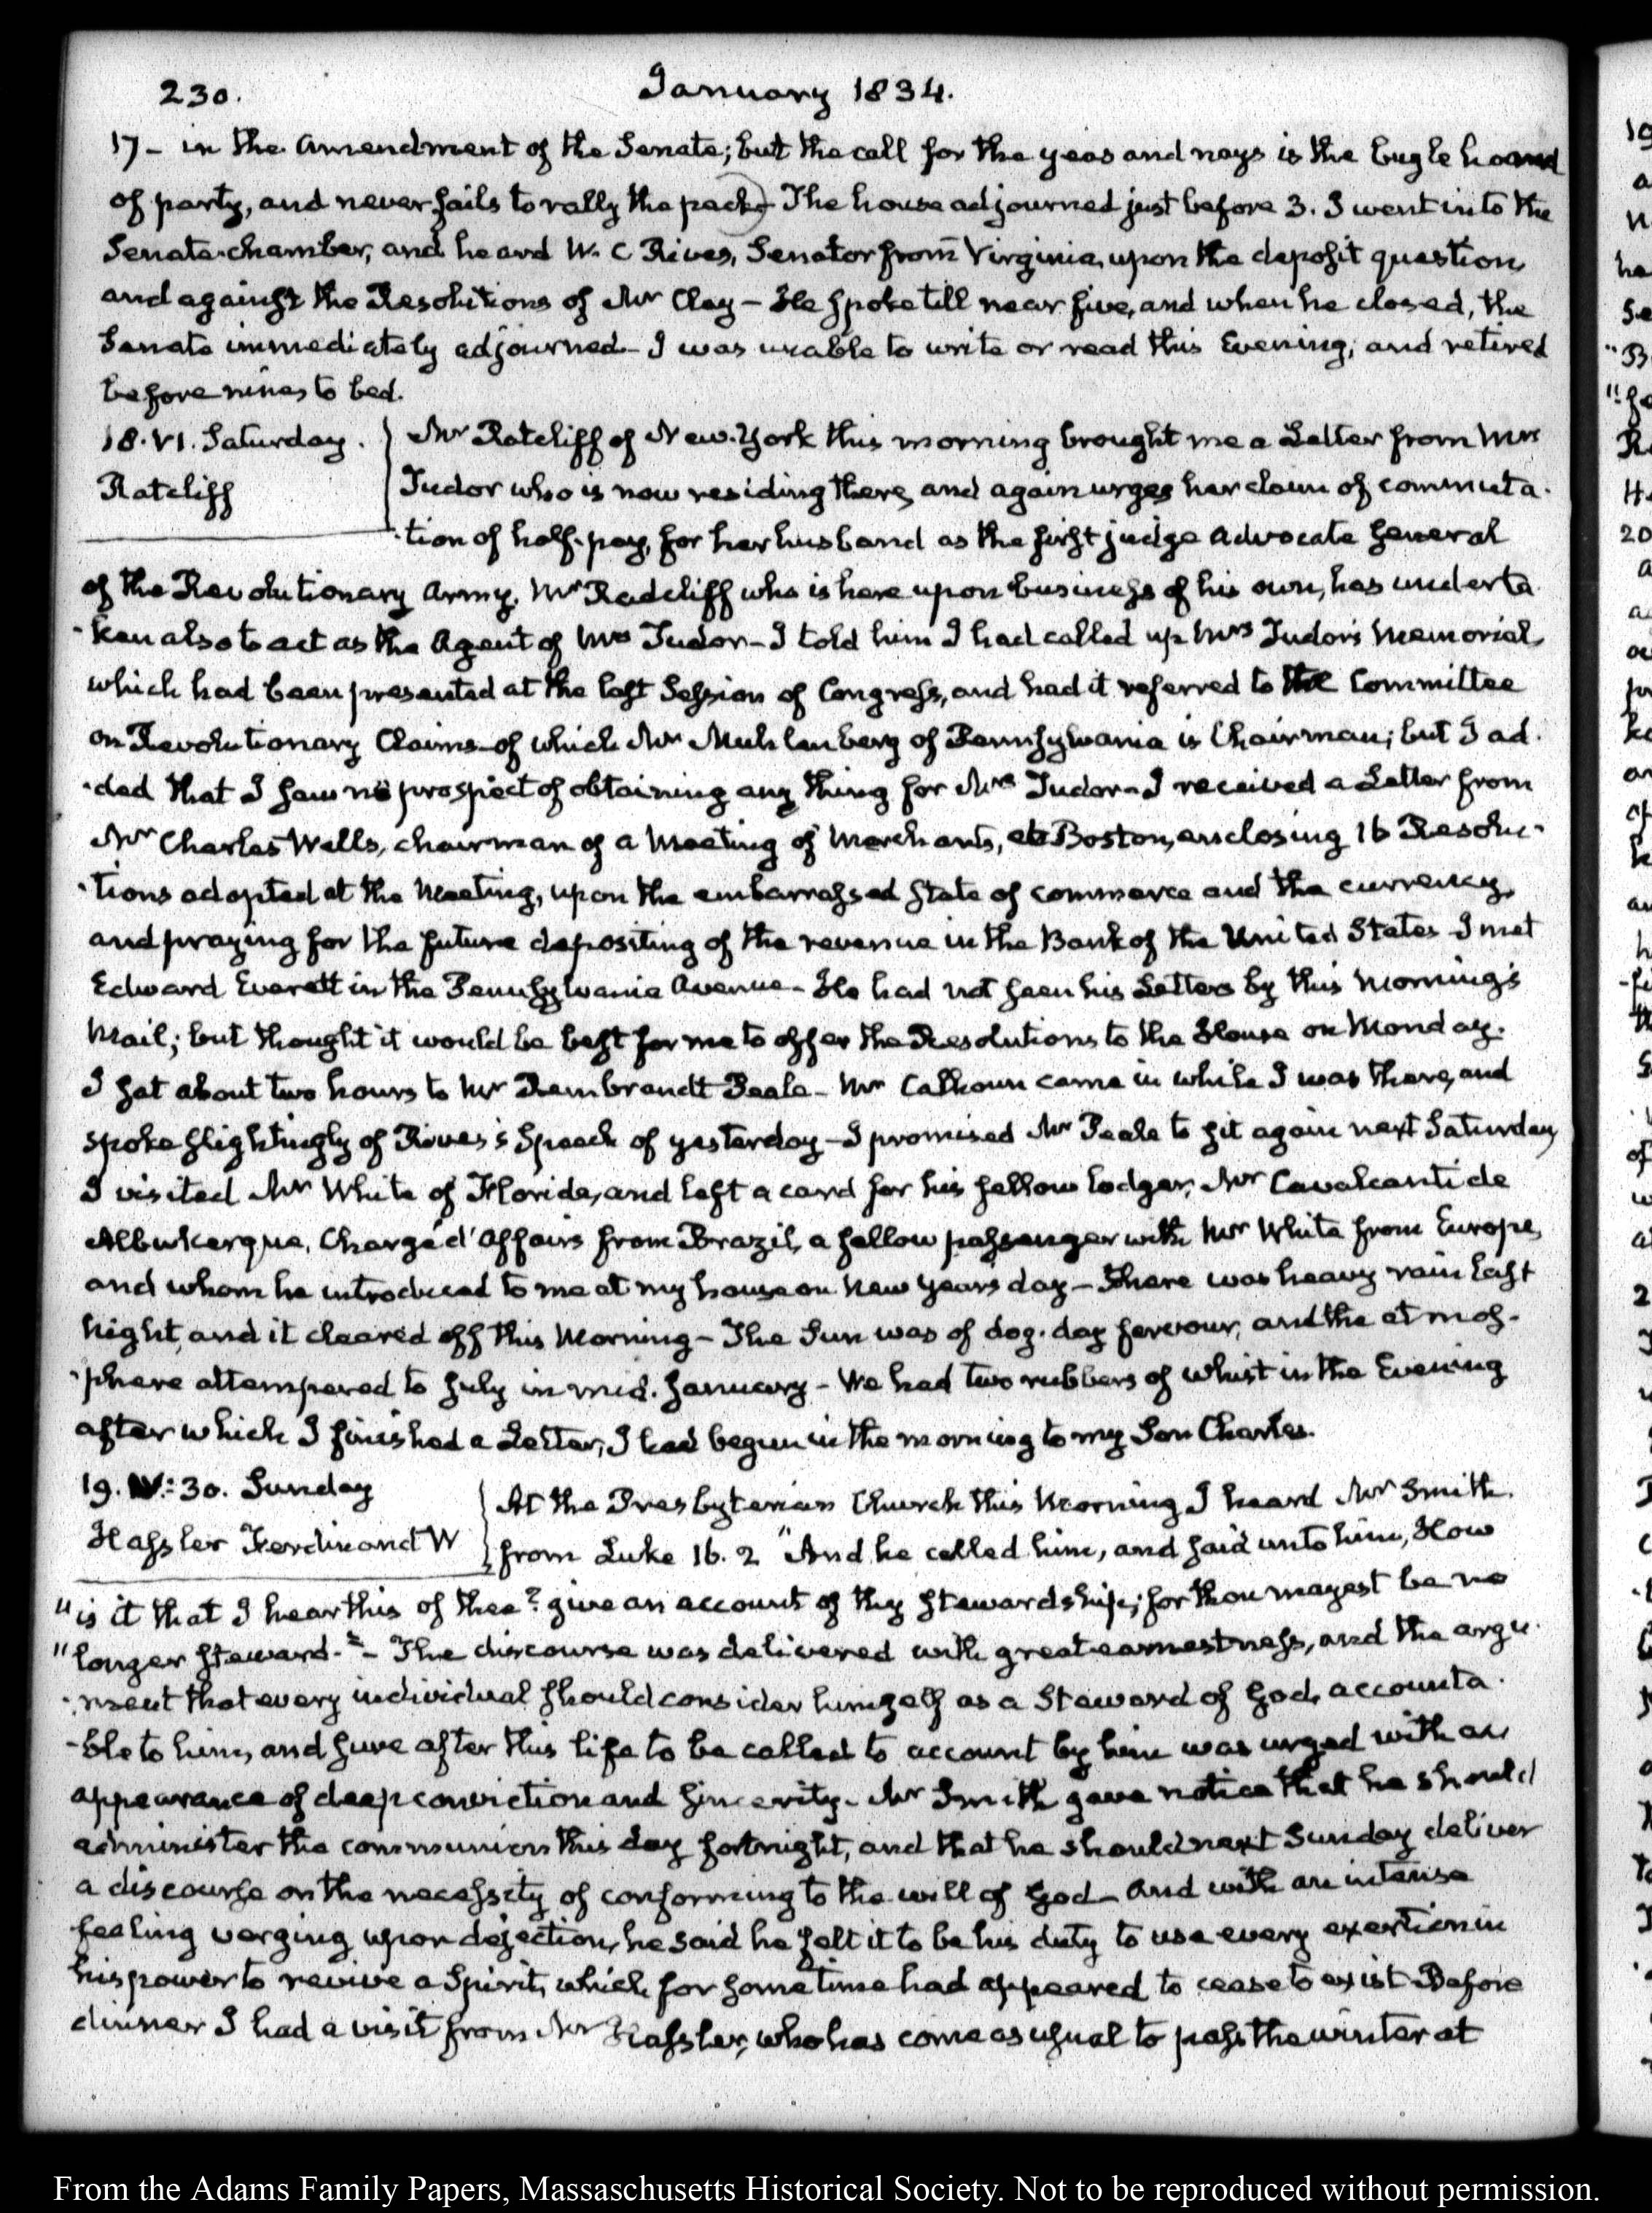 230.
January 1834.
17 – in the amendment of the Senate; but the call for the yeas and nays is the bugle
of party, and never fails to rally the pack. The house adjourned just before 3. I went into the
Senate-chamber, and heard W. C Rives, Senator from Virginia, upon the deposit question
and against the Resolutions of Mr Clay – He spoke till near five, and when he closed, the
Senate immediately adjourned – I was unable to write or read this Evening; and retired
before nine, to bed.
18. VI. Saturday.
Ratcliff
Mr Ratcliff of New-York this morning brought me a Letter from Mrs
Tudor who is now residing there, and again urges her claim of commuta-
-tion of half-pay, for her husband as the first judge Advocate General
of the Revolutionary Army. Mr Radcliff who is here upon business of his own, has underta
-ken also to act as the Agent of Mrs Tudor – I told him I had called up Mrs Tudor's Memorial,
which had been presented at the last Session of Congress, and had it referred to the Committee
on Revolutionary Claims – of which Mr Muhlenberg of Pennsylvania is Chairman; but I ad-
-ded that I saw no prospect of obtaining any thing for Mrs Tudor – I received a Letter from
Mr Charles Wells, chairman of a Meeting of Merchants, at Boston, enclosing 16 Resolu-
-tions adopted at the Meeting, upon the embarrassed state of commerce and the currency,
and praying for the future depositing of the revenue in the Bank of the United States – I met
Edward Everett in the Pennsylvania Avenue – He had not seen his Letters by this Morning's
Mail; but thought it would be best for me to offer the Resolutions to the House on Monday.
I sat about two hours to Mr Rembrandt Peale – Mr Calhoun came in while I was there, and
spoke slightingly of Rives's Speech of yesterday – I promised Mr Peale to sit again next Saturday
I visited Mr White of Florida, and left a card for his fellow lodger, Mr Cavalcanti de
Albukerque, Chargé d'Affairs from Brazil, a fellow passenger with Mr White from Europe,
and whom he introduced to me at my house on New Years day – There was heavy rain last
night, and it cleared off this Morning – The Sun was of dog-day fervour, and the atmos-
-phere attempered to July in mid. January – We had two rubbers of whist in the Evening
after which I finished a Letter, I had begun in the morning to my Son Charles.
19. IV: 30. Sunday
Hassler Ferdinand W
At the Presbyterian Church this Morning I heard Mr Smith.
from Luke 16. 2 "And he called him, and said unto him, How
"is it that I hear this of thee? give an account of thy stewardship; for thou mayest be no
"longer steward." – The discourse was delivered with great earnestness, and the argu-
-ment that every individual should consider himself as a Steward of God, accounta-
-ble to him, and sure after this life to be called to account by him was urged with an
appearance of deep conviction and sincerity – Mr Smith gave notice that he should
administer the communion this day fortnight, and that he should next Sunday deliver
a discourse on the necessity of conforming to the will of God – and with an intense
feeling verging upon dejection, he said he felt it to be his duty to use every exertion in
his power to revive a Spirit, which for some time had appeared to cease to exist – Before
dinner I had a visit from Mr Hassler, who has come as usual to pass the winter at
From the Adams Family Papers, Massaschusetts Historical Society. Not to be reproduced without permission.